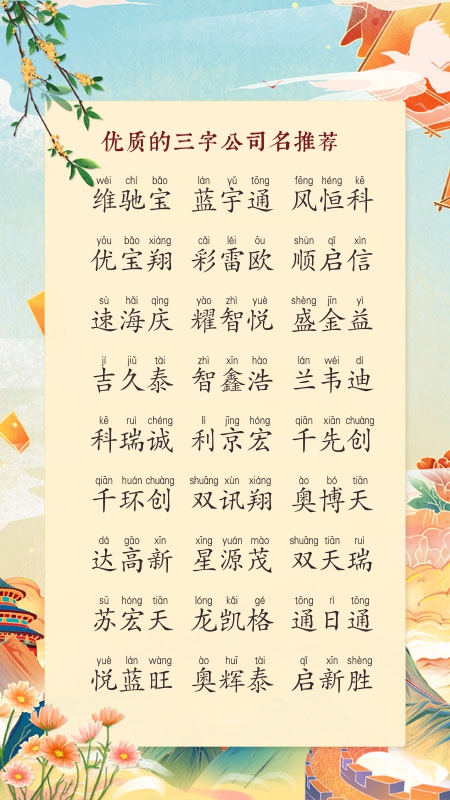 优质的三字公司名推荐
wéi chí bǎo lán yǔ tōng fēng héng kē
维驰宝 蓝宇通 风恒科
yōu bǎo xiáng cǎi léi ōu shùn qǐ xìn
优宝翔 彩雷欧 顺启信
sù hǎi qìng yào zhì yuè shèng jīn yì
速海庆 耀智悦 盛金益
jí jiǔ tài zhì xīn hào lán wéi dí
吉久泰 智鑫浩 兰韦迪
kē ruì chéng lì jīng hóng qiān xiān chuàng
科瑞诚 利京宏 千先创
qiān huán chuàng shuāng xùn xiáng ào bó tiān
千环创 双讯翔 奥博天
dá gāo xīn xīng yuán mào shuāng tiān ruì
达高新 星源茂 双天瑞
sū hóng tiān lóng kǎi gé tōng rì tōng
苏宏天 龙凯格 通日通
yuè lán wàng ào huī tài qǐ xīn shèng
悦蓝旺 奥辉泰 启新胜